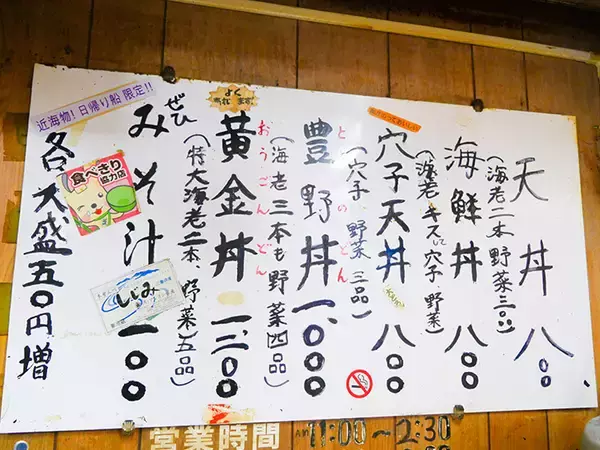 天丼 八〇〇
(海老二本 野菜三品)
海鮮丼 八〇〇
(海老、キスに穴子、野菜)
穴子天丼 八〇〇
(穴子、野菜三品)
とよのどん
豊野丼 一、〇〇〇
(海老三本も野菜四品)
おうごんどん
よく
出ます
黄金丼 一、三〇〇
(特大海老二本、野菜五品)
ぜひ
みそ汁 一〇〇
しじみ
近海物!日帰り船限定!!
食べきり
協力店
各大盛五〇円増
営業時間 AM 11:00〜2:30